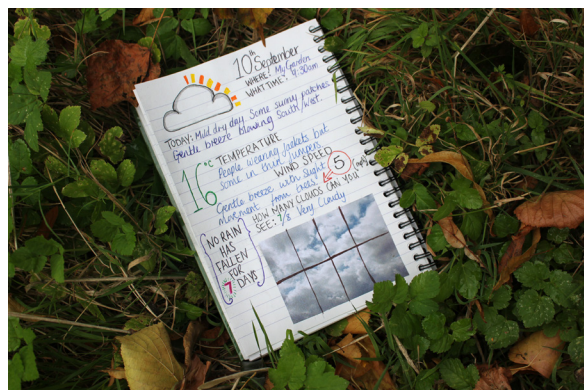 10th September
WHERE? My Garden
WHAT TIME? 9:30am
TODAY: Mild dry day. Some sunny patches
Gentle breeze blowing South/West.
16°C TEMPERATURE
People wearing jackets but
some in thin jumpers
WIND SPEED 5 (mph)
Gentle breeze with slight
movement from trees.
HOW MANY CLOUDS CAN YOU
SEE? /8 Very Cloudy
NO RAIN
HAS
FALLEN
FOR
7 DAYS